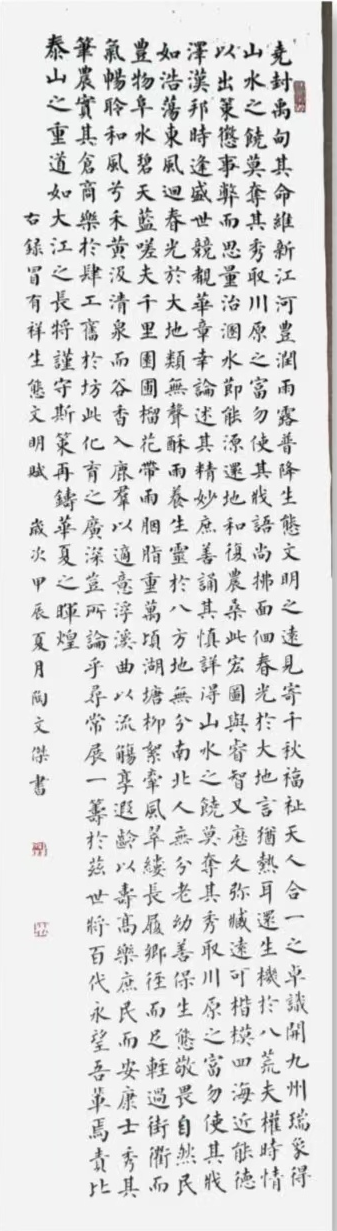 堯封禹甸其命維新江河豐潤雨露普降生態文明之遠見寄千秋福祉天人合一之卓識開九州瑞象得
山水之饒莫奪其秀取川原之富勿使其戕語尚拂面佪春光於大地言猶熱耳還生機於八荒夫權時情
以出策懲事弊而思量治溷水節能源還地和復農桑此宏圖與睿智又歷久弥臧遠可楷模四海近能德
澤漢邦時逢盛世競觀華章幸論述其精妙庶善誦其慎詳得山水之饒莫奪其秀取川原之富勿使其戕
如浩蕩東風迴春光於大地類無聲酥雨養生靈於八方地無分南北人無分老幼善保生態敬畏自然民
豐物阜水碧天藍嗟夫千里園圃榴花帶雨胭脂重萬頃湖塘柳絮牽風翠縷長履鄉徑而足輕過街衢而
氣暢聆和風兮禾黃汲清泉而谷香入麋羣以適意浮溪曲以流觴享遐齡以壽高樂庶民而安康士秀其
筆農實其倉商樂於肆工舊於坊此化育之廣深豈所論乎尋常展一籌於茲世將百代永望吾輩焉責比
泰山之重道如大江之長將謹守斯策再鑄華夏之暉煌
右錄冒有祥生態文明賦 歲次甲辰夏月陶文傑書